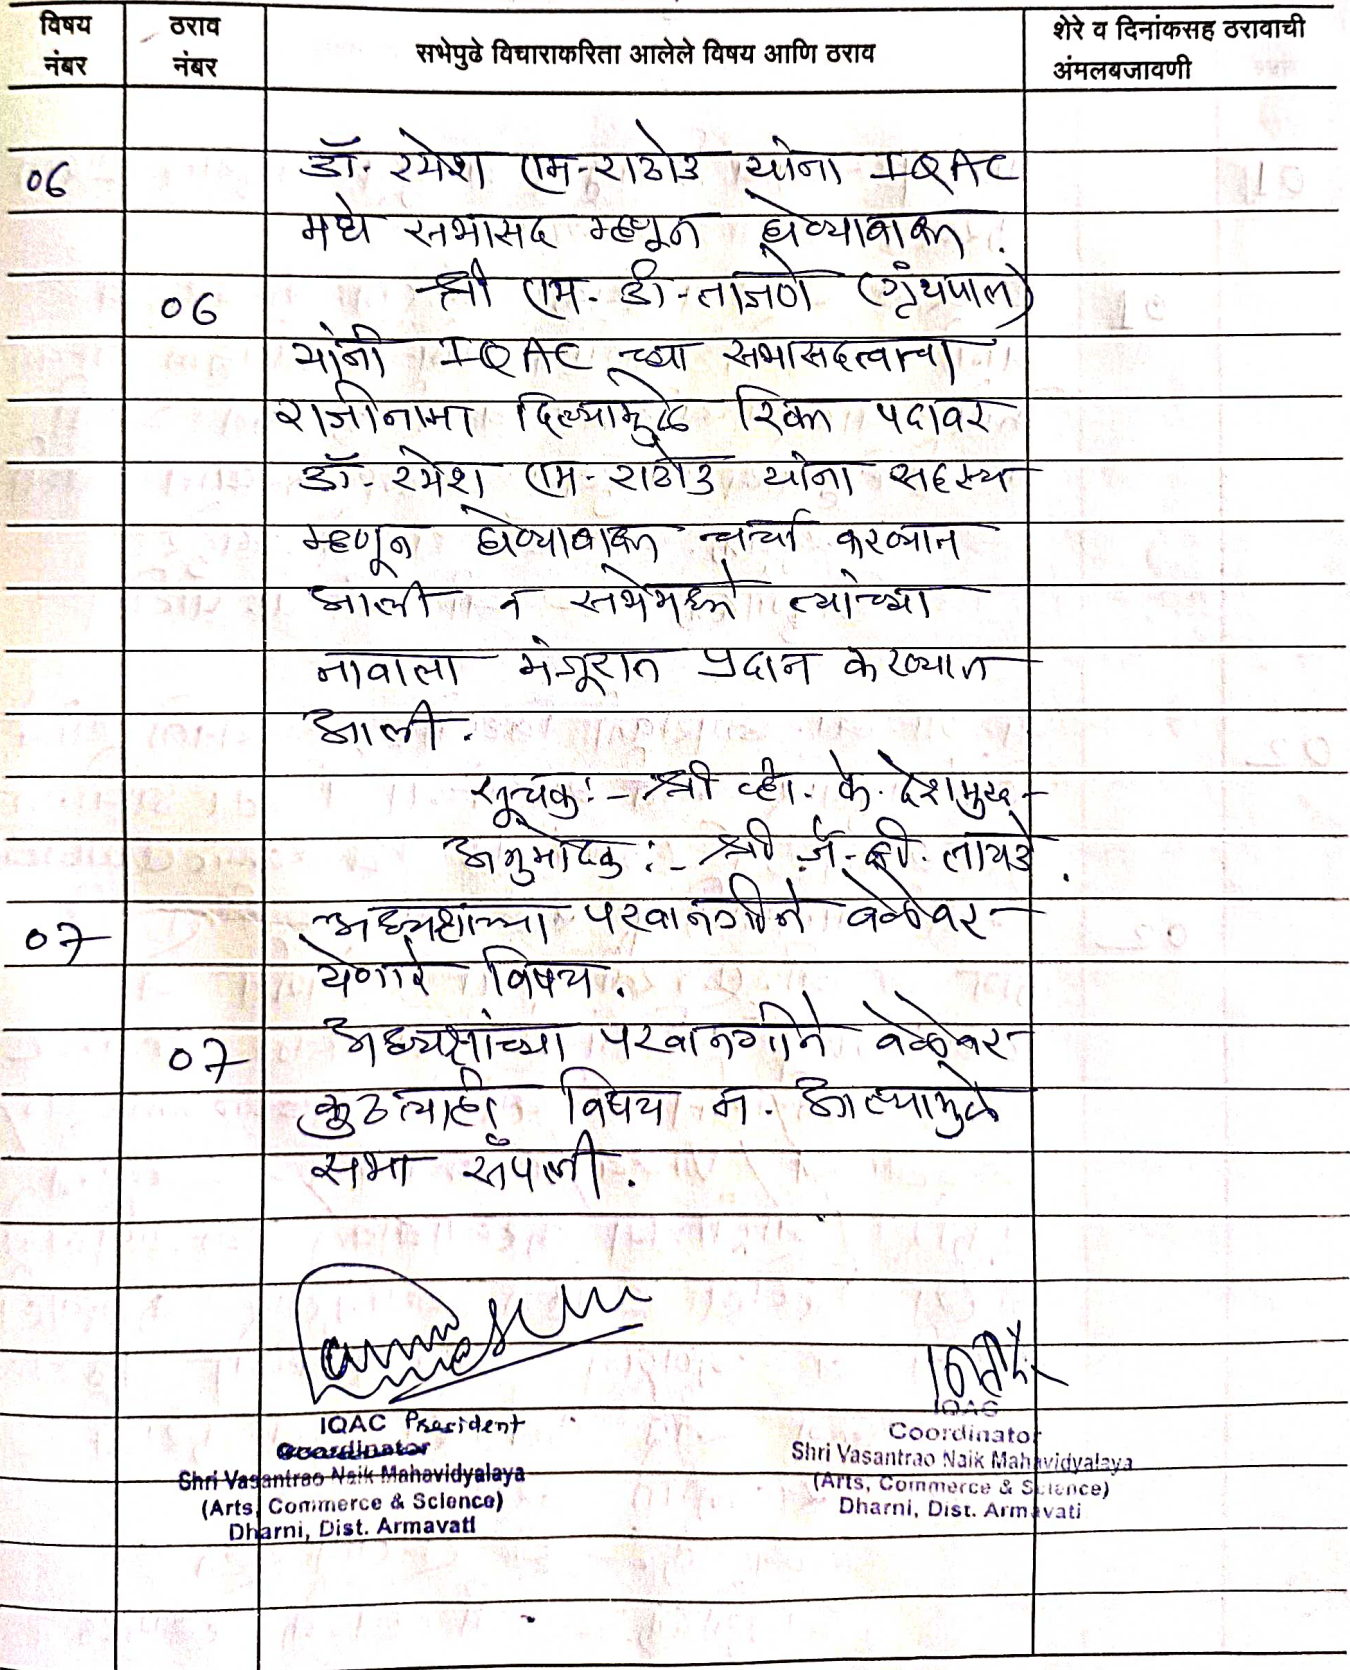 विषय नंबर
ठराव नंबर
सभेपुढे विचाराकरिता आलेले विषय आणि ठराव
शेरे व दिनांकसह ठरावाची अंमलबजावणी
06
डॉ. रमेश एम. राठोड यांना IQAC
मध्ये सभासद म्हणून घेण्याबाबत.
06
श्री एम. डी. ताजणे (ग्रंथपाल)
यांनी IQAC च्या सभासदत्वाचा
राजीनामा दिल्यामुळे रिक्त पदावर
डॉ. रमेश एम. राठोड यांना सदस्य
म्हणून घेण्याबाबत चर्चा करण्यात
आली व सभेमध्ये त्यांच्या
नावाला मंजूरात प्रदान करण्यात
आली.
सूचक :- श्री व्ही. के. देशमुख
अनुमोदक :- श्री जे. डी. लायडे.
07
अध्यक्षांच्या परवानगीने वेळेवर
येणारे विषय.
07
अध्यक्षांच्या परवानगीने वेळेवर
कुठत्याही विषय न. आल्यामुळे
सभा संपली.
IQAC President
Coordinator
Shri Vasantrao Naik Mahavidyalaya
(Arts, Commerce & Science)
Dharni, Dist. Armavati
IQAC
Coordinator
Shri Vasantrao Naik Mahavidyalaya
(Arts, Commerce & Science)
Dharni, Dist. Armavati